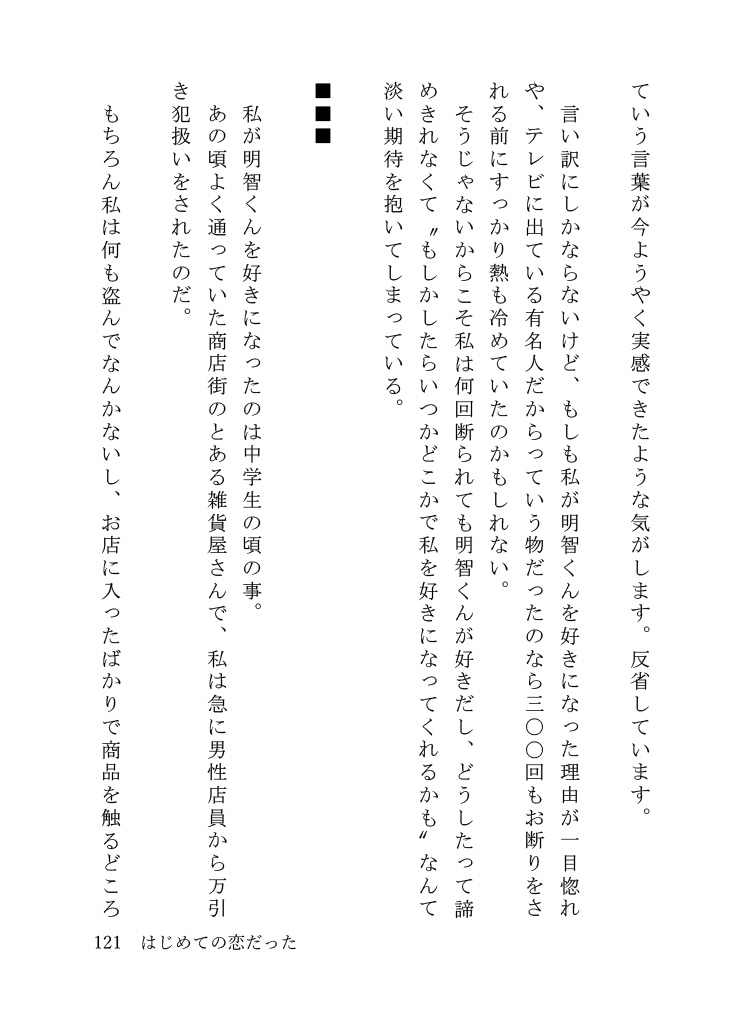 ていう言葉が今ようやく実感できたような気がします。反省しています。
　言い訳にしかならないけど、もしも私が明智くんを好きになった理由が一目惚れ
や、テレビに出ている有名人だからっていう物だったのなら三〇〇回もお断りをさ
れる前にすっかり熱も冷めていたのかもしれない。
　そうじゃないからこそ私は何回断られても明智くんが好きだし、どうしたって諦
めきれなくて〝もしかしたらいつかどこかで私を好きになってくれるかも〟なんて
淡い期待を抱いてしまっている。
■■■
　私が明智くんを好きになったのは中学生の頃の事。
　あの頃よく通っていた商店街のとある雑貨屋さんで、私は急に男性店員から万引
き犯扱いをされたのだ。
　もちろん私は何も盗んでなんかないし、お店に入ったばかりで商品を触るどころ
121　はじめての恋だった